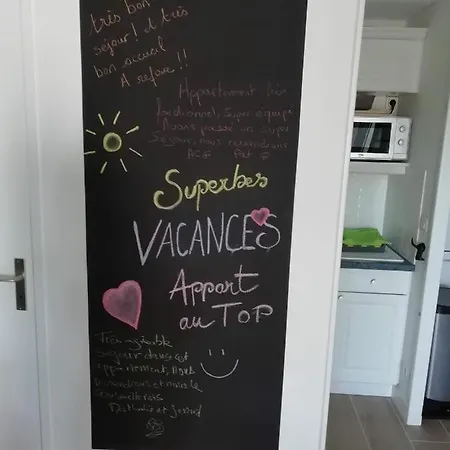 très bon
séjour! et très
bon accueil
A refaire!!
Appartement très
fonctionnel, super équipé
Avons passé un super
séjour, nous reviendrons
Superbes
VACANCES
Appart
au TOP
Très agréable
séjour dans cet
appartement, nous
reviendrons
et